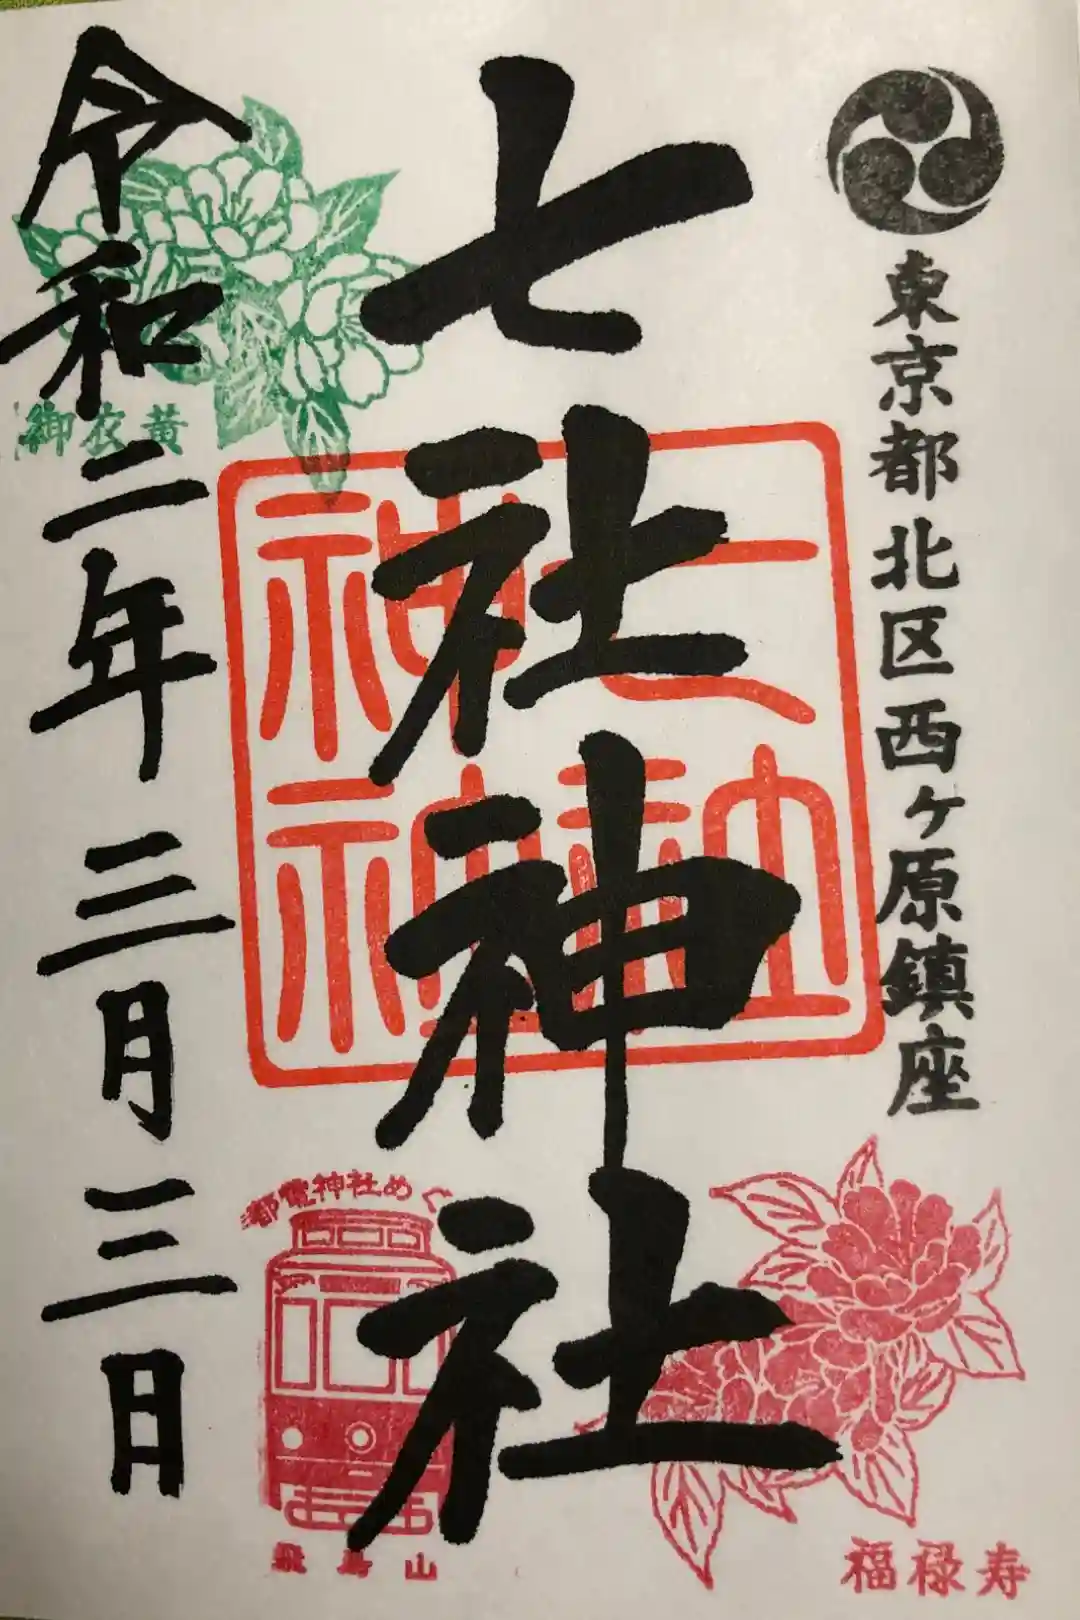 東京都北区西ヶ原鎮座
七社神社
七社神社
令和二年三月三日
御衣黄
都電神社めぐり
飛鳥山
福禄寿